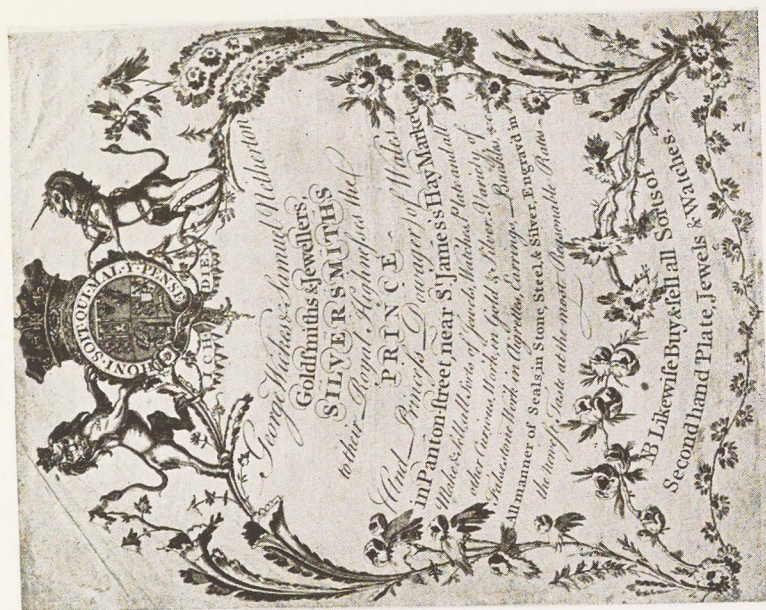 HONI·SOIT·QUI·MAL·Y·PENSE
ICH DIEN
George Wickes & Samuel Netherton
Goldſmiths & Jewellers,
SILVERSMITHS
to their Royal Highneſses the
PRINCE
And Princeſs Dowager of Wales
in Panton-ſtreet, near St. James's Hay Market
Makes & ſells all ſorts of Jewels, Watches, Plate and all
other Curious Work, in Gold & Silver, Variety of
Falſe ſtone Work in Aigrettes, Earrings, Buckles, &c.
All manner of Seals, in Stone, Steel, & Silver, Engrav'd in
the neweſt Taste at the most Reasonable Rates
NB Likewiſe Buy & ſell all Sorts of
Second hand Plate, Jewels & Watches.
XI